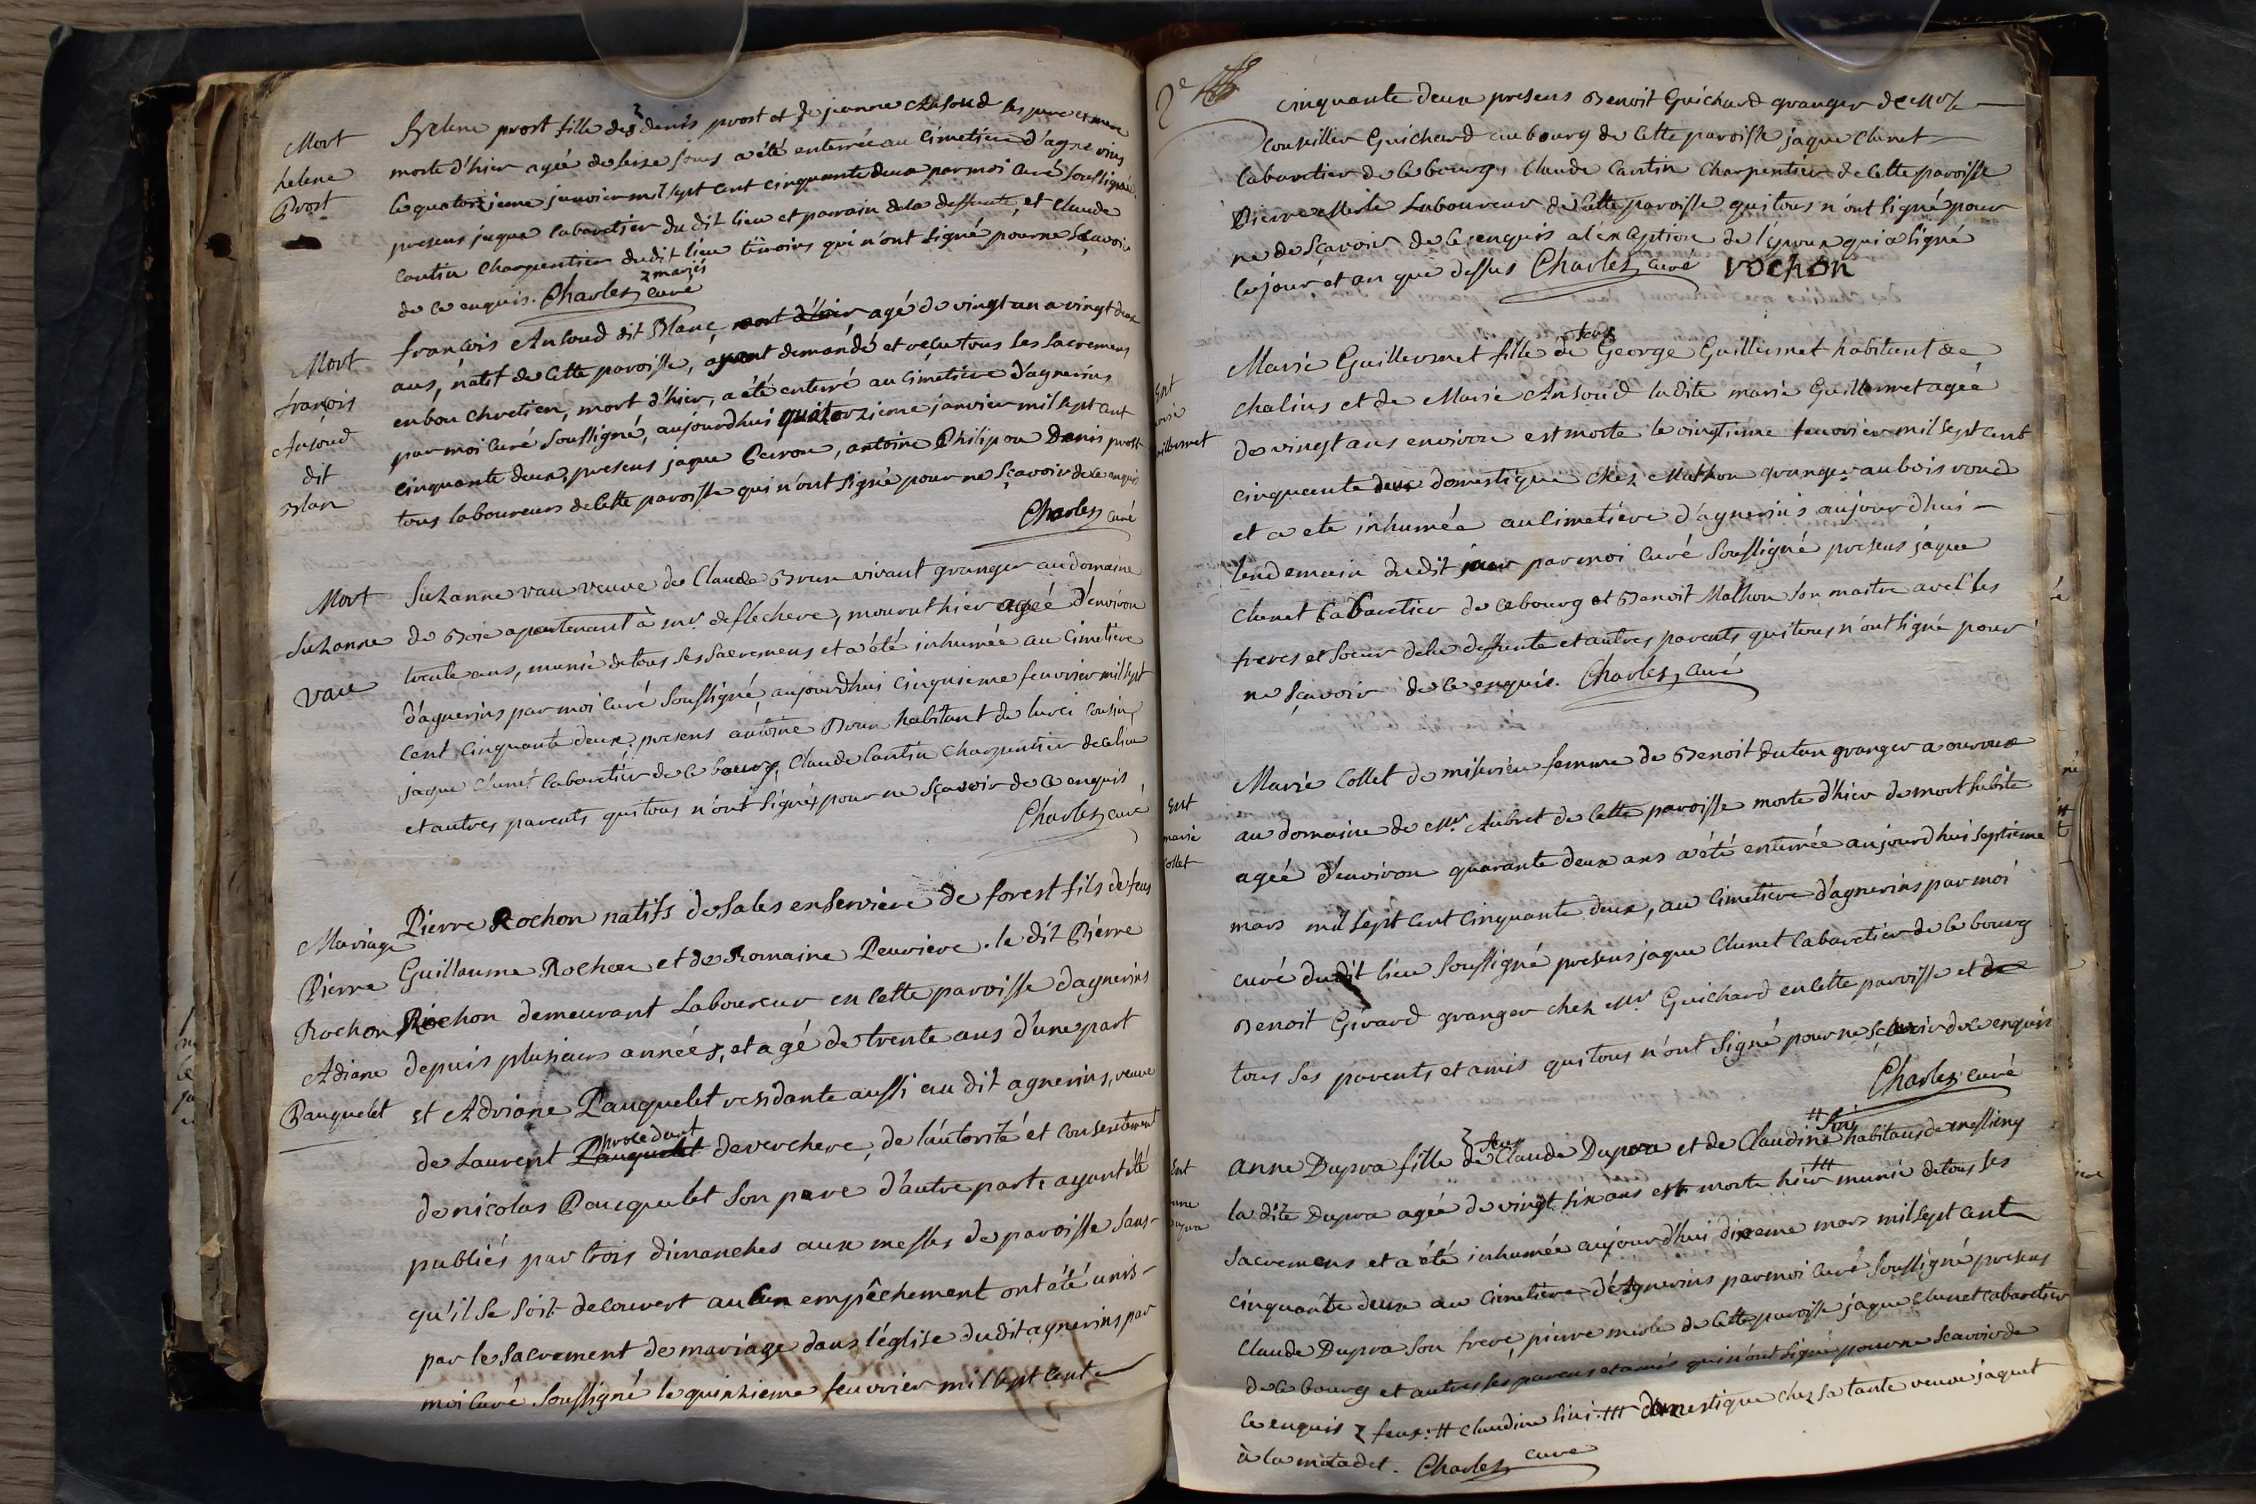 Mort
helene
Prost
helene prost fille de denis prost et de jeanne Ansoud ses pere et mere
morte d'hier agée de seise jours a été enterrée au cimetiere d'agnerins
le quatorzieme janvier mil sept cent cinquante deux par moi curé soussigné
presens jaque cabaretier du dit lieu et parrain de la deffunte, et claude
cantin charpentier du dit lieu témoins qui n'ont signé pour ne sçavoir
de ce enquis. Charles, curé
z mariés
Mort
françois
Ansoud
dit
Blan
françois Ansoud dit Blanc, mort d'hier agé de vingt un a vingt deux
ans, natif de cette paroisse, ayant demandé et reçu tous ses sacremens
en bon chretien, mort d'hier, a été enterré au cimetiere d'agnerins
par moi curé soussigné, aujourdhui quatorzieme janvier mil sept cent
cinquante deux, presens jaque Perron, antoine Philipon Denis prost
tous laboureurs de cette paroisse qui n'ont signé pour ne sçavoir de ce enquis
Charles, curé
Mort
Suzanne
vau
Suzanne vau veuve de Claude Brun vivant granger au domaine
de Boie apartenant à mr. deflechere, mourut hier agée d'environ
trente ans, munie de tous ses sacremens et a été inhumée au cimetiere
d'agnerins par moi curé soussigné, aujourdhui cinquieme feuvrier mil sept
cent cinquante deux. presens antoine Brun habitant de lurci cousin,
jaque clunet cabaretier de ce bourg, Claude Cantin charpentier de ce lieu
et autres parents qui tous n'ont signé, pour ne sçavoir de ce enquis
Charles, curé
Mariage
Pierre
Rochon
Adriane
Pauquelet
Pierre Rochon natifs de Sales en serviere de forest fils de feus
Guillaume Rochon et de Romaine Peuriere. le dit Piérre
Rochon demeurant Laboureur en cette paroisse dagnerins
depuis plusieurs années, et agé de trente ans d'une part
et Adriane Pauquelet residante aussi au dit agnerins, veuve
de Laurent Pauquelet deverchere, de l'autorité et consentement
de nicolas Paucquelet son pere d'autre part, ayant été
publiés par trois dimanches aux messes de paroisse sans-
qu'il se soit decouvert aucun empêchement ont été unis-
par le sacrement de mariage dans l'église dudit agnerins par
moi curé soussigné le quinzieme feuvrier mil sept cent
2e
cinquante deux presens Benoit Guichard granger de Mr
Conseiller Guichard au bourg de cette paroisse jaque clunet
cabaretier de ce bourg, claude Cantin charpentier de cette paroisse
Pierre Merle Laboureur de cette paroisse qui tous n'ont signé pour
ne de sçavoir de ce enquis a l'exception de l'époux qui a signé
le jour et an que dessus Charles, curé rochon
Ent
marie
Guillermet
Marie Guillermet fille de feus George Guillermet habitant de
chalins et de Marie Ansoud ladite marie Guillermet agée
de vingt ans environ est morte le vingtieme feuvrier mil sept cent
cinquante deux domestique chez Mathon granger au bois rond
et a ete inhumée au cimetiere d'agnerins aujourdhui
lendemain dudit jour par moi curé soussigné presens jaque
clunet cabaretier de ce bourg et Benoit Mathon son maitre avec ses
freres et soeur dela deffunte et autres parents, qui tous n'ont signé pour
ne sçavoir de ce enquis. Charles, curé
Ent
marie
collet
Marie Collet de miserieu femme de Benoit Dutan granger a ouroux
au domaine de Mr. Aubret de cette paroisse morte d'hier de mort subite
agée d'environ quarante deux ans a été enterrée aujourdhui septieme
mars mil sept cent cinquante deux, au cimetiere d'agnerins par moi
curé dudit lieu soussigné presens jaque clunet cabaretier de ce bourg
Benoit Girard granger chez Mr. Guichard en cette paroisse et de
tous ses parents et amis qui tous n'ont signé pour ne scavoir de ce enquis
Charles, curé
Ent
anne
dupra
anne Dupra fille de feus Claude Dupra et de Claudine habitans de messimy
la dite Dupra agée de vingt six ans est morte hier munie de tous ses
sacremens et a été inhumée aujourd'hui dixeme mars mil sept cent
cinquante deux au cimetiere d'Agnerins par moi curé soussigné presens
Claude Dupra son frere, piérre merle de cette paroisse jaque clunet cabaretier
de ce bourg et autres ses parens et amis qui n'ont signé pour ne scavoir de
ce enquis z feux: # claudine Sivi. ### domestique chez sa tante veuve jaquet
à la motadel. Charles, curé